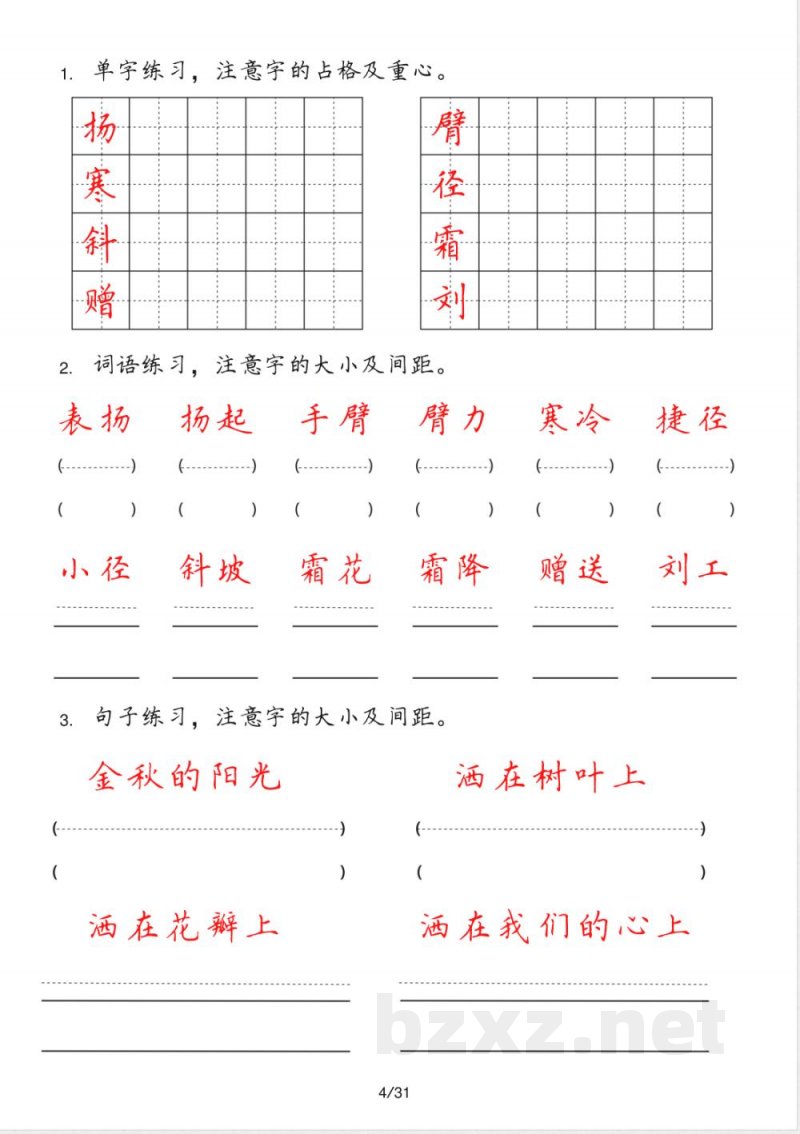 1. 单字练习，注意字的占格及重心。
扬 臂
寒 径
斜 霜
赠 刘
2. 词语练习，注意字的大小及间距。
表扬 扬起 手臂 臂力 寒冷 捷径
( ) ( ) ( ) ( ) ( ) ( )
( ) ( ) ( ) ( ) ( ) ( )
小径 斜坡 霜花 霜降 赠送 刘工
3. 句子练习，注意字的大小及间距。
金秋的阳光 洒在树叶上
( ) ( )
( ) ( )
洒在花瓣上 洒在我们的心上
bzxz.net
4/31